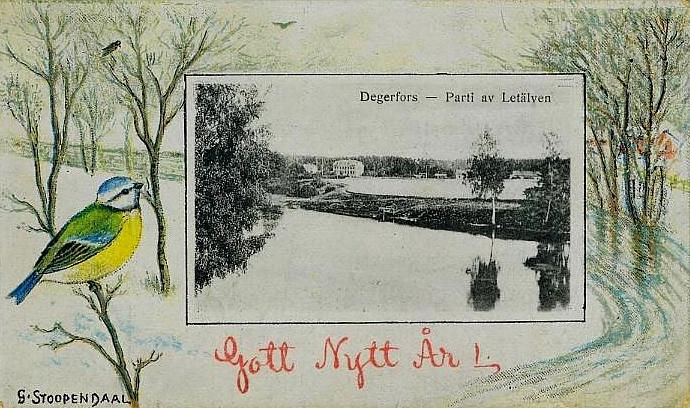 Degerfors — Parti av Letälven
Gott Nytt År!
G. STOOPENDAAL